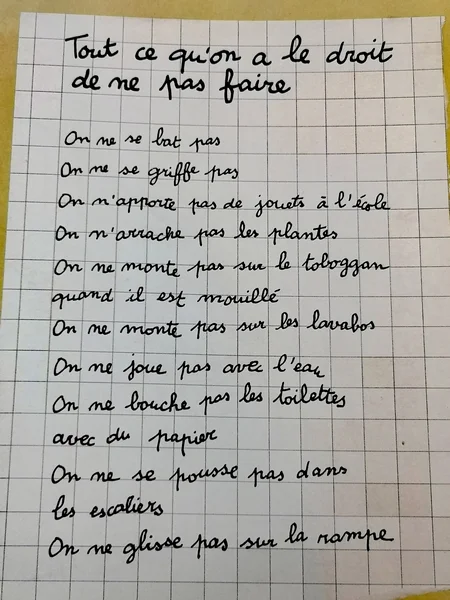 Tout ce qu'on a le droit
de ne pas faire
On ne se bat pas
On ne se griffe pas
On n'apporte pas de jouets à l'école
On n'arrache pas les plantes
On ne monte pas sur le toboggan
quand il est mouillé
On ne monte pas sur les lavabos
On ne joue pas avec l'eau
On ne bouche pas les toilettes
avec du papier
On ne se pousse pas dans
les escaliers
On ne glisse pas sur la rampe